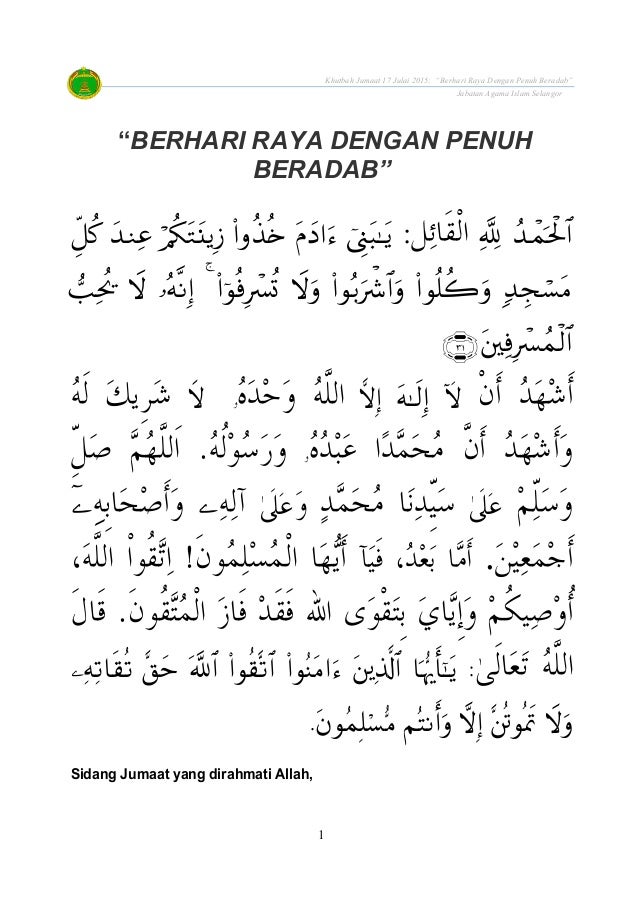 Khutbah Jumaat 17 Julai 2015: “Berhari Raya Dengan Penuh Beradab”
Jabatan Agama Islam Selangor
“BERHARI RAYA DENGAN PENUH
BERADAB”
ٱلۡحَمۡدُ لِلَّهِ الْقَائِل: يَٰبَنِيٓ ءَادَمَ خُذُواْ زِينَتَكُمۡ عِندَ كُلِّ
مَسۡجِدٖ وَكُلُواْ وَٱشۡرَبُواْ وَلَا تُسۡرِفُوٓاْۚ إِنَّهُۥ لَا يُحِبُّ
ٱلۡمُسۡرِفِينَ ٣١
أَشْهَدُ أَنْ لآ إِلَـٰهَ إِلاَّ اللَّهُ وَحْدَهُۥ لَا شَرِيكَ لَهُ
وَأَشْهَدُ أَنَّ مُحَمَّدًا عَبْدُهُۥ وَرَسُوْلُهُ. اَللَّهُمَّ صَلِّ
وَسَلِّمْ عَلَىٰ سَيِّدِنَا مُحَمَّدٍ وَعَلَىٰ آلِهِۦ وَأَصْحَابِهِۦٓ
أَجْمَعِيْنَ. أَمَّا بَعْدُ، فَيَآ أَيُّهَا الْمُسْلِمُونَ! اِتَّقُواْ اللَّهَ،
أُوْصِيكُمْ وَإِيَّايَ بِتَقْوَى الله فَقَدْ فَازَ الْمُتَّقُونَ. قَالَ
اللَّهُ تَعَالَىٰ: يَٰٓأَيُّهَا ٱلَّذِينَ ءَامَنُواْ ٱتَّقُواْ ٱللَّهَ حَقَّ تُقَاتِهِۦ
وَلَا تَمُوتُنَّ إِلَّا وَأَنتُم مُّسۡلِمُونَ.
Sidang Jumaat yang dirahmati Allah,
1